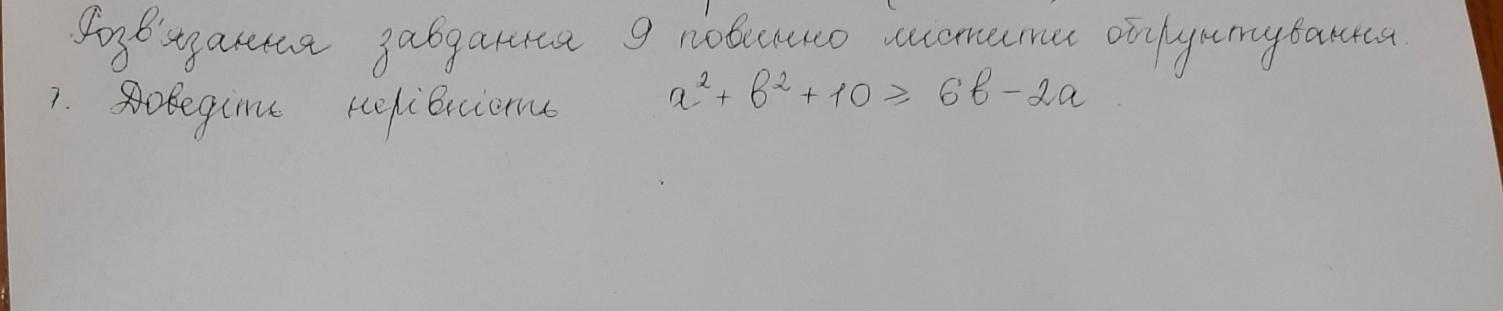 Розв'язання завдання 9 повинно містити обґрунтування.
Доведіть нерівність a² + b² + 10 ≥ 6b - 2a.